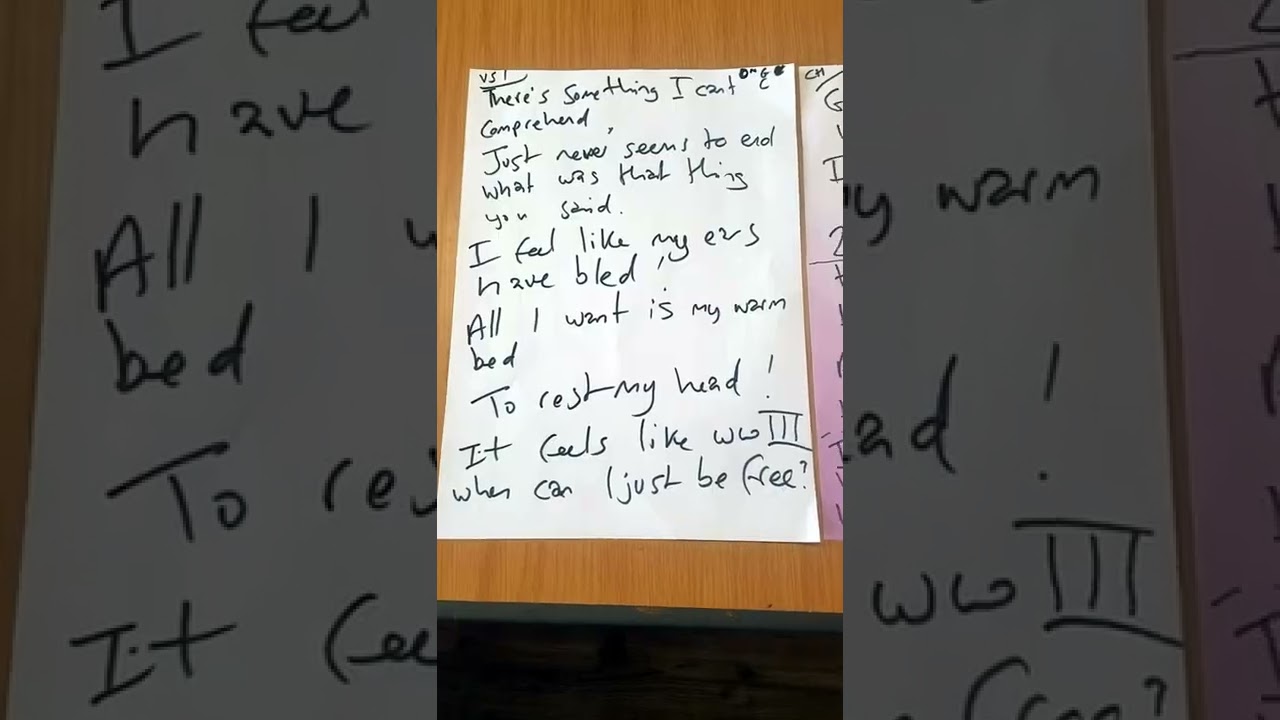 VS 1
There's something I cant
comprehend,
Just never seems to end
what was that thing
you said.
I feel like my ears
have bled!
All I want is my warm
bed
To rest my head!
It feels like WWIII
when can I just be free?